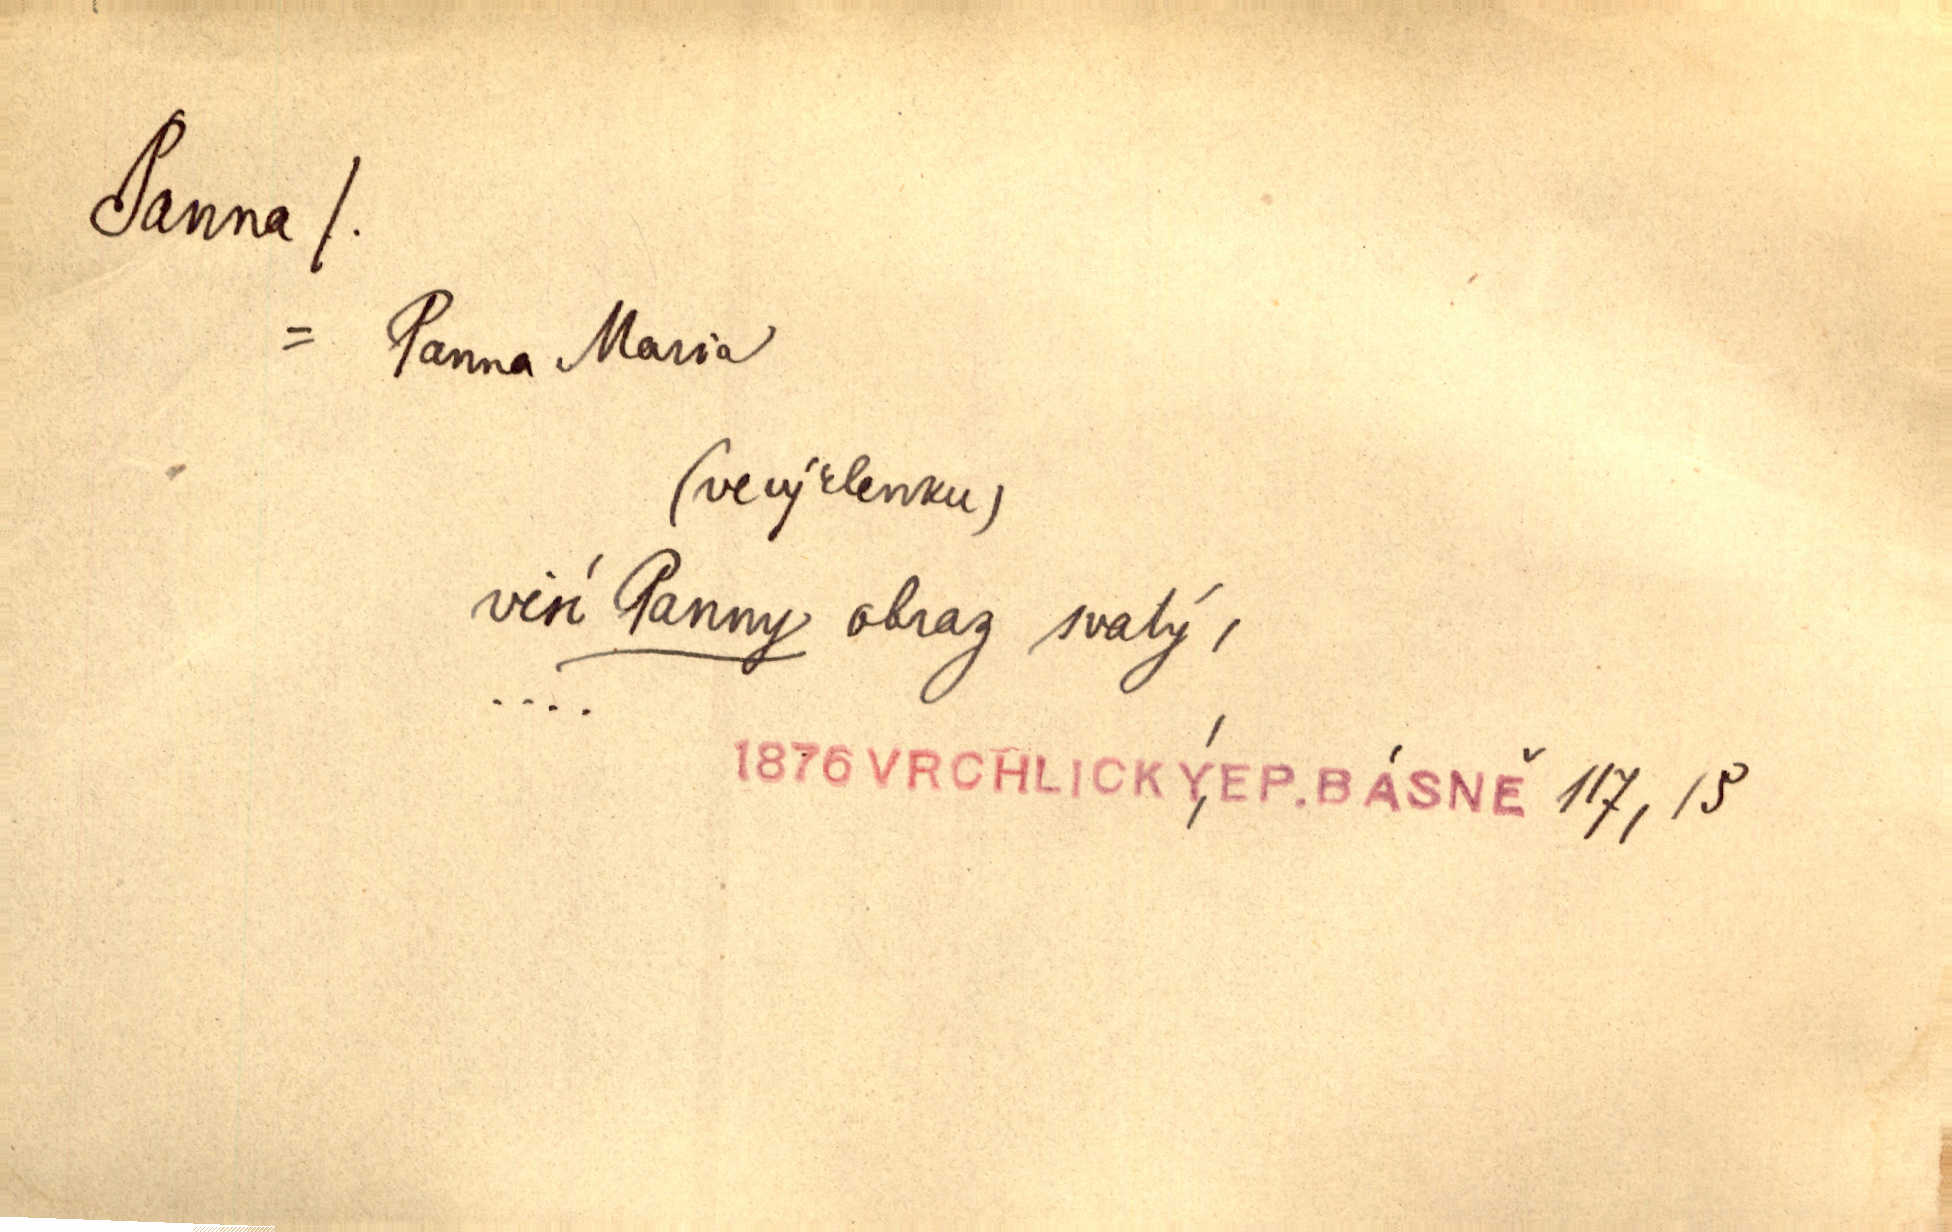 Panna f.
= Panna Maria
(ve výklenku)
visí Panny obraz svatý,
....
1876 VRCHLICKÝ, EP. BÁSNĚ 117, 15